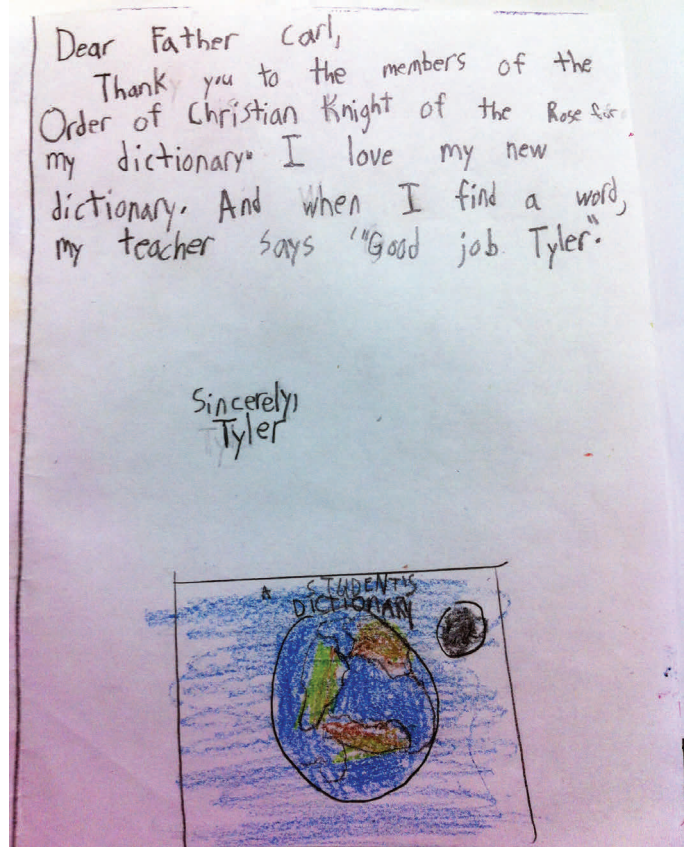 Dear Father Carl,
Thank you to the members of the
Order of Christian Knight of the Rose for
my dictionary. I love my new
dictionary. And when I find a word,
my teacher says '"Good job Tyler".
Sincerely,
Tyler
A STUDENT'S
DICTIONARY